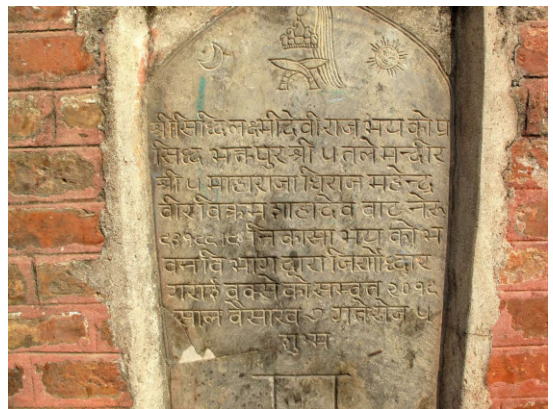 श्री सिद्धि लक्ष्मी देवी राज भय को प्र
सिद्ध भक्तपुर श्री ५ तले मन्दीर
श्री ५ माहाराजा धिराज महेन्द्र
वीर विक्रम शाहदेव बाट नेरू
निकासा भय को भ
वन विभाग द्वारा जिर्णोध्दार
गराई बक्से का सम्वत २०१८
साल वैसाख ७ गते रोज ५
शुभम